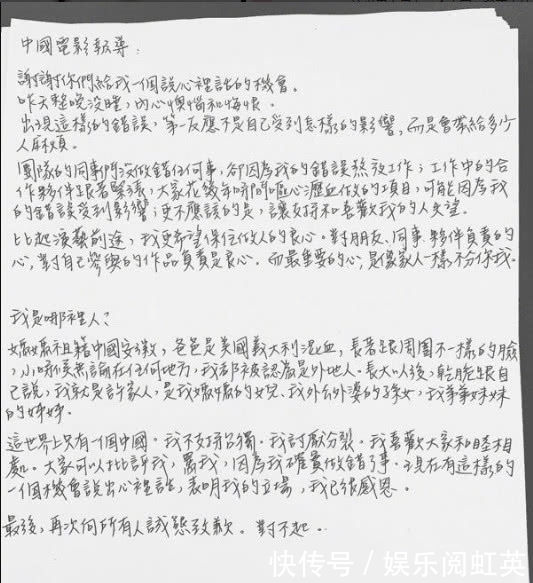 中國電影報導：
謝謝你們給我一個說心裡話的機會。
昨天整晚沒睡，內心懊惱和悔恨。
出現這樣的錯誤，第一反應不是自己受到怎樣的影響，而是會帶給多少
人麻煩。
團隊的同事們沒做錯任何事，卻因為我的錯誤熬夜工作；工作中的合
作夥伴跟著緊張，大家花幾年時間嘔心瀝血做的項目，可能因為我
的錯誤受到影響；更不應該的是，讓支持和喜歡我的人失望。
比起演藝前途，我更希望保住做人的良心。對朋友、同事、夥伴負責的
心，對自己參與的作品負責是良心。而最重要的心，是像家人一樣不分你我。
我是哪裡人？
媽媽祖籍中國安徽，爸爸是美國義大利混血，長著跟周圍不一樣的臉
，小時候無論在任何地方，我都被認為是外地人。長大以後，乾脆跟自
己說，我就是許家人，是我媽媽的女兒、我外公外婆的孫女，我弟弟妹妹
的姊姊。
這世界上只有一個中國。我不支持台獨。我討厭分裂。我喜歡大家和睦相
處。大家可以批評我，罵我，因為我確實做錯了事。現在有這樣的
一個機會說出心裡話，表明我的立場，我已很感恩。
最後，再次向所有人誠懇致歉。對不起。
快传号 / 娱乐阅虹英